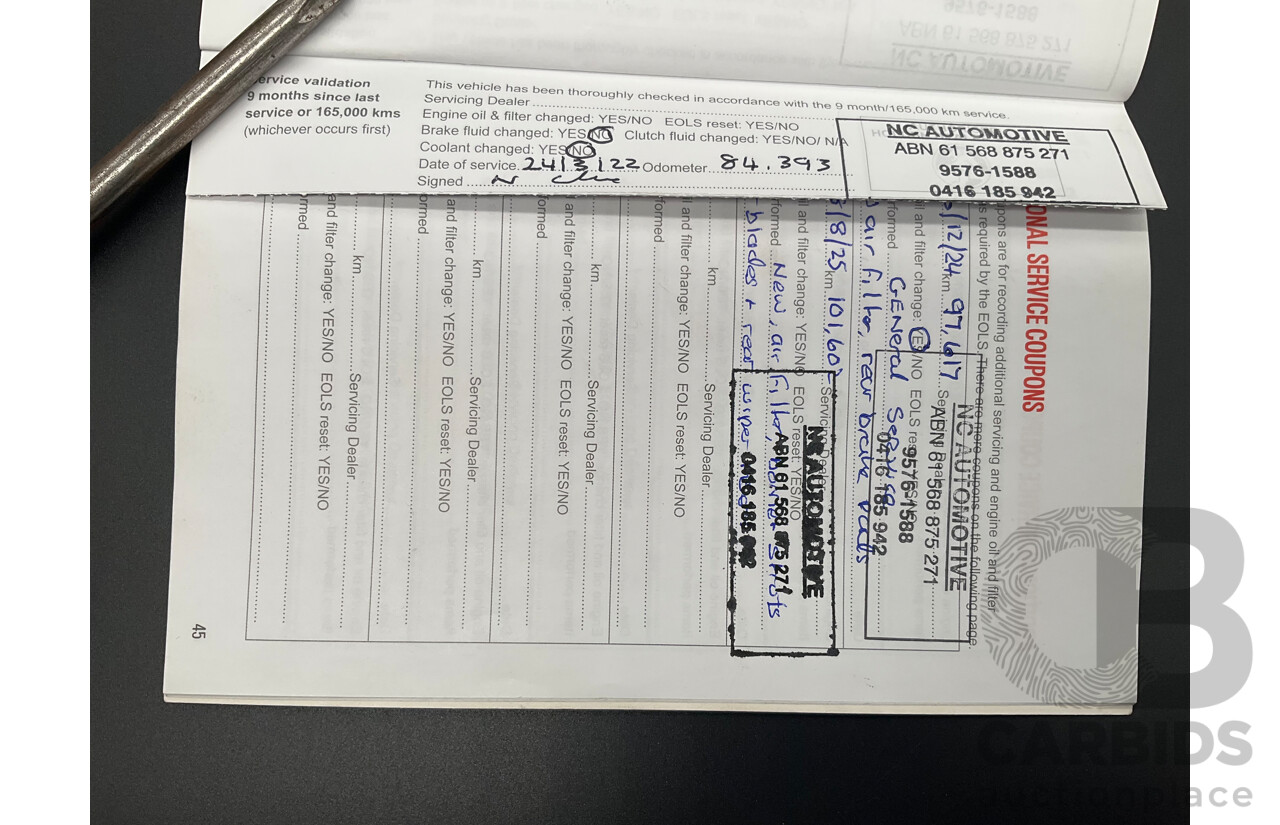 9576-1588
ABN 61 568 875 271
NC AUTOMOTIVE
ervice validation
9 months since last
service or 165,000 kms
(whichever occurs first)
This vehicle has been thoroughly checked in accordance with the 9 month/165,000 km service.
Servicing Dealer
Engine oil & filter changed: YES/NO EOLS reset: YES/NO
Brake fluid changed: YES/NO Clutch fluid changed: YES/NO/ N/A
Coolant changed: YES/NO
Date of service 24/3/22 Odometer 84.393
Signed
NC AUTOMOTIVE
ABN 61 568 875 271
9576-1588
0416 185 942
ONAL SERVICE COUPONS
upons are for recording additional servicing and engine oil and filter
s required by the EOLS. There are more coupons on the following page.
/12/24 km 97,617 Servicing Dealer
il and filter change: YES/NO EOLS reset: YES/NO
formed GENERAL Service
air filter, rear brake pads
NC AUTOMOTIVE
ABN 61 568 875 271
9576-1588
0416 185 942
/8/25 km 101,60 Servicing Dealer
il and filter change: YES/NO EOLS reset: YES/NO
formed New, air filter,
blades + rear wiper
NC AUTOMOTIVE
ABN 61 568 875 271
0416 185 942
km Servicing Dealer
il and filter change: YES/NO EOLS reset: YES/NO
formed
km Servicing Dealer
and filter change: YES/NO EOLS reset: YES/NO
formed
km Servicing Dealer
and filter change: YES/NO EOLS reset: YES/NO
ormed
km Servicing Dealer
and filter change: YES/NO EOLS reset: YES/NO
ormed
45
CARBIDS
auctionplace